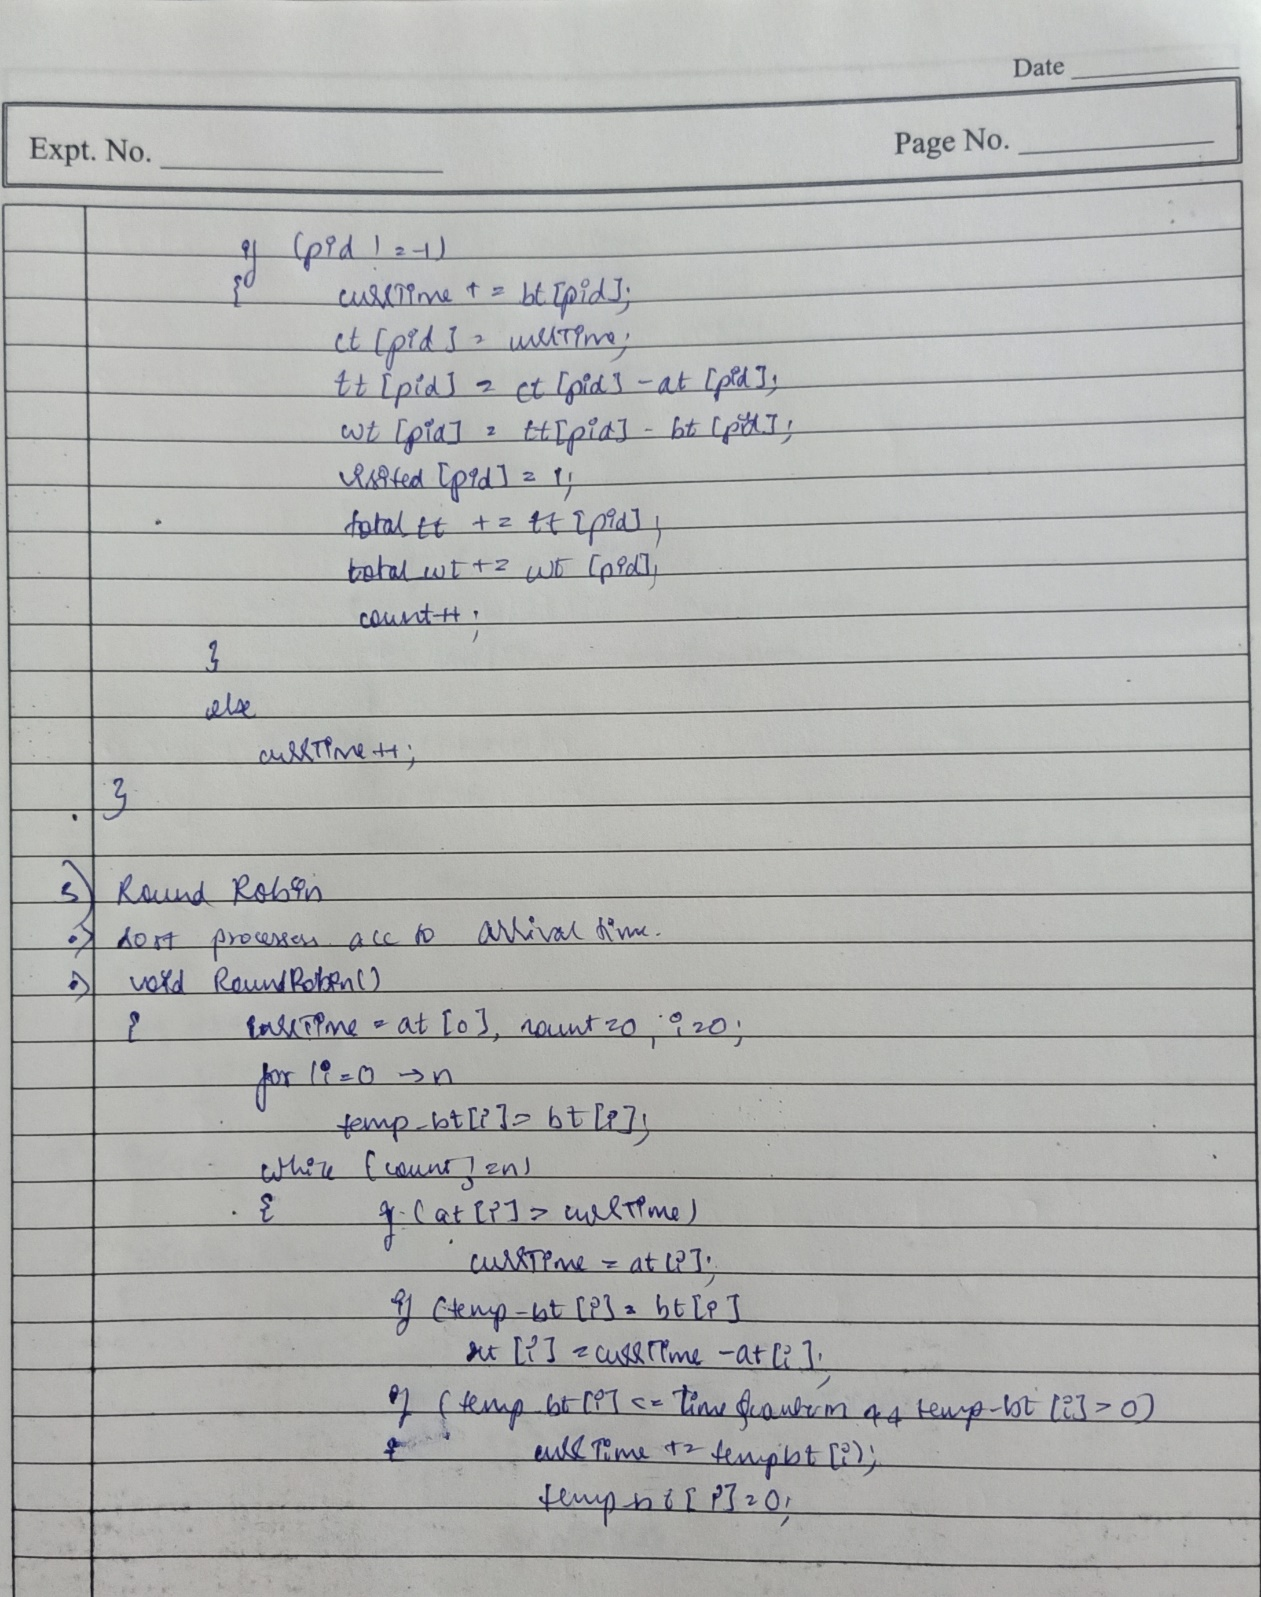 Date
Expt. No.
Page No.
if (pid != -1)
{ currTime += bt[pid];
ct[pid] = currTime;
tt[pid] = ct[pid] - at[pid];
wt[pid] = tt[pid] - bt[pid];
visited[pid] = 1;
total tt += tt[pid];
total wt += wt[pid];
count++;
}
else
currTime++;
}
5) Round Robin
•) Sort processes acc to arrival time.
•) void RoundRobin()
{ currTime = at[0], count=0, i=0;
for (i=0 → n
temp_bt[i] = bt[i];
while (count != n)
{ if (at[i] > currTime)
currTime = at[i];
if (temp-bt[i] = bt[i]
rt[i] = currTime - at[i];
if (temp_bt[i] <= Time Quantum && temp-bt[i] > 0)
{ currTime += tempbt[i];
temp_bt[i] = 0;